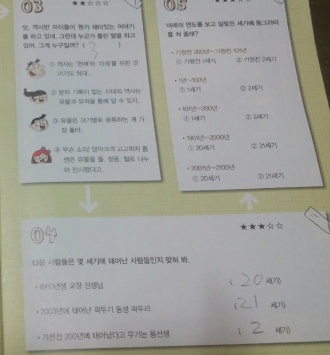 03
★★☆☆☆
앗, 역사반 아이들이 뭔가 재미있는 이야기
를 하고 있네. 그런데 누군가 틀린 말을 하고
있어. 그게 누구일까? ( 3 )
① 역사는 '현재'와 '미래'를 위한 것
이기도 하대.
② 문자 기록이 없는 시대의 역사는
유물과 유적을 통해 알 수 있지.
③ 유물은 크기별로 분류하는 게 가
장 좋아.
④ 무슨 소리! 덴마크의 고고학자 톰
센은 유물을 돌, 청동, 철로 나누
어 전시했다고.
05
★★★☆☆
아래의 연도를 보고 알맞은 세기에 동그라미
를 쳐 볼래?
· 기원전 200년~기원전 101년
① 기원전 1세기 ② 기원전 2세기
· 1년~100년
① 1세기 ② 2세기
· 101년~200년
① 1세기 ② 2세기
· 1901년~2000년
① 20세기 ② 21세기
· 2001년~2100년
① 20세기 ② 21세기
04
★★★☆☆
다음 사람들은 몇 세기에 태어난 사람들인지 맞혀 봐.
· 1960년생 교장 선생님 ( 20 세기)
· 2003년에 태어난 곽두기 동생 곽두리 ( 21 세기)
· 기원전 200년에 태어났다고 우기는 용선생 ( 2 세기)